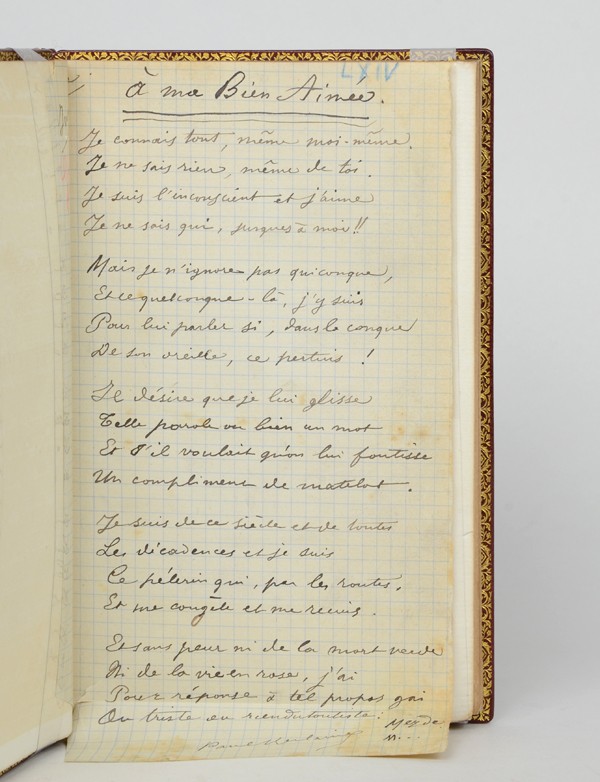 LXIV
à ma Bien Aimée.
Je connais tout, même moi-même.
Je ne sais rien, même de toi.
Je suis l'inconscient et j'aime
Je ne sais qui, jusques à moi!!
Mais je n'ignore pas quiconque,
Et ce quelconque-là, j'y suis
Pour lui parler si, dans la conque
De son oreille, ce pertuis !
Il désire que je lui glisse
Telle parole ou bien un mot
Et s'il voulait qu'on lui
Un compliment de matelot.
Je suis de ce siècle et de toutes
Les décadences et je suis
Ce pélerin qui, par les routes,
Et me congèle et me recuis.
Et sans peur ni de la mort verde
Ni de la vie en rose, j'ai
Pour réponse à tel propos gai
Ou triste ou rien du tout
Paul Verlaine